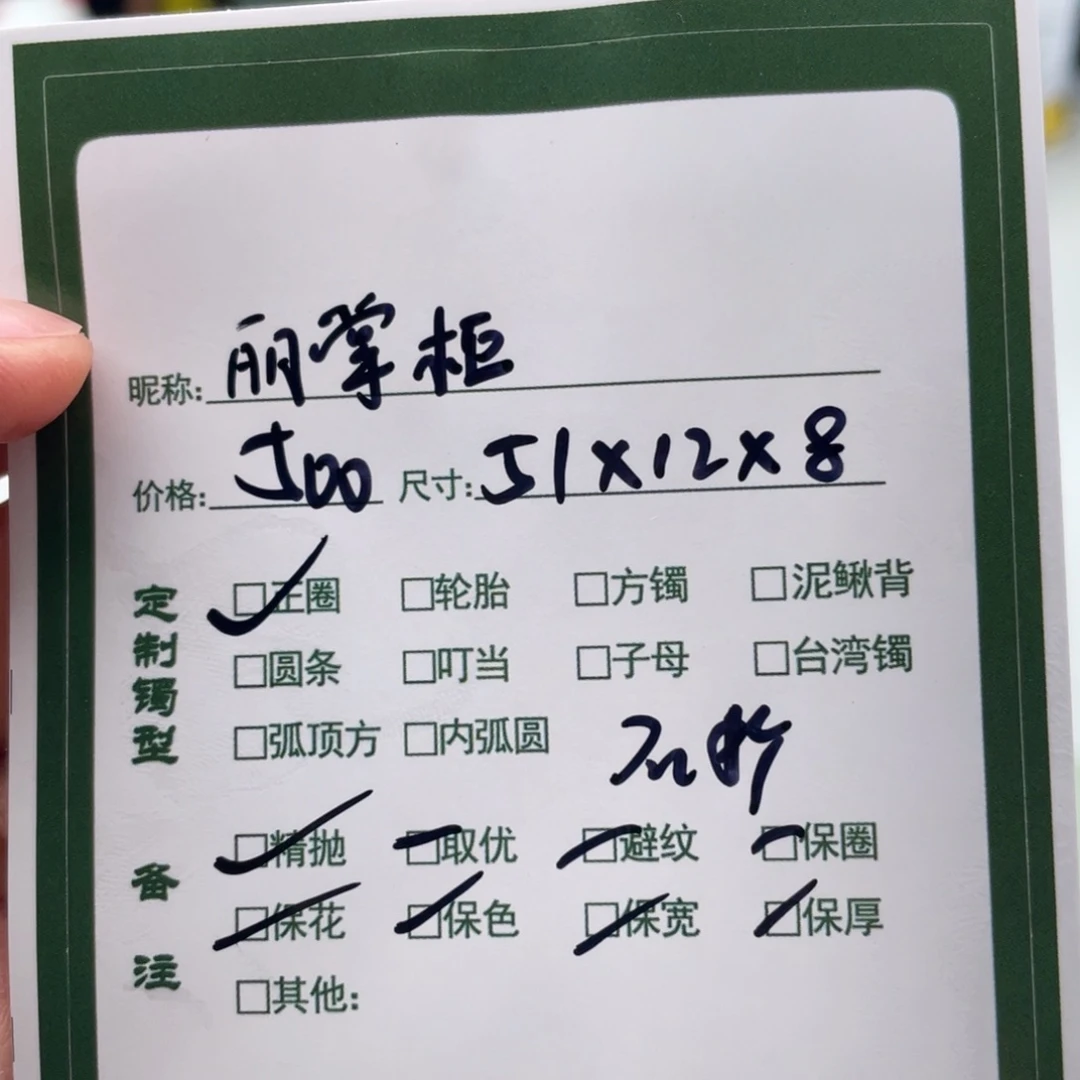 昵称:丽掌柜
价格:500 尺寸:51×12×8
定制镯型
□正圈 □轮胎 □方镯 □泥鳅背
□圆条 □叮当 □子母 □台湾镯
□弧顶方 □内弧圆
备注
□精抛 □取优 □避纹 □保圈
□保花 □保色 □保宽 □保厚
□其他: